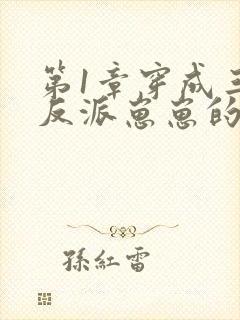 第1章穿成三
反派崽崽的
孫紅雷